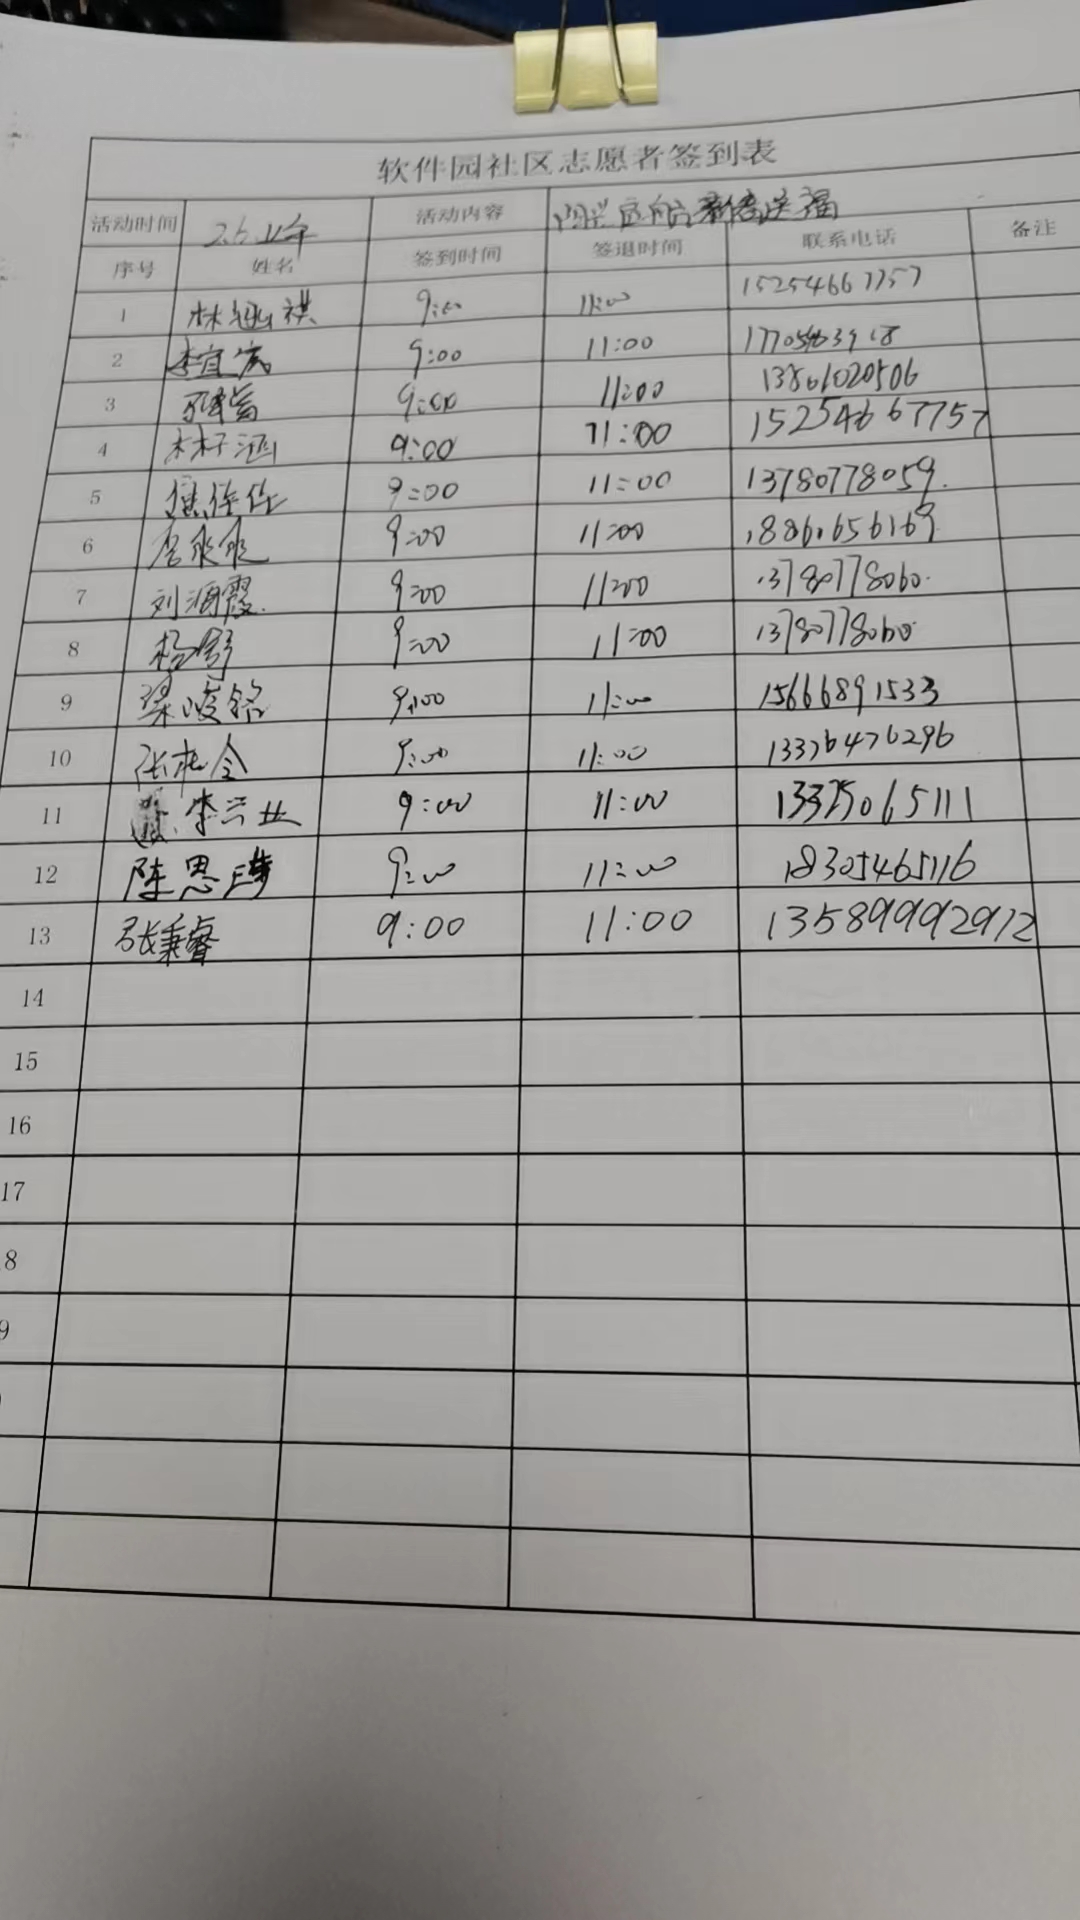 软件园社区志愿者签到表
活动时间 2.6 上午 活动内容 送福
序号 姓名 签到时间 签退时间 联系电话 备注
1 林 祺 9:00 11:00 15254667757
2 李宜宸 9:00 11:00
3 9:00 11:00 13801020506
4 林子涵 9:00 11:00 15254667757
5 焦佳佳 9:00 11:00 13780778059.
6 9:00 11:00 18861656169
7 刘海霞. 9:00 11:00 13780778060.
8 杨舒 9:00 11:00 13780778060
9 梁峻铭 9:00 11:00 15666891533
10 张 9:00 11:00 13376476296
11 李兴业 9:00 11:00 13325065111
12 陈思 9:00 11:00 18305465116
13 张秉睿 9:00 11:00 13589992912
14
15
16
17
8
9